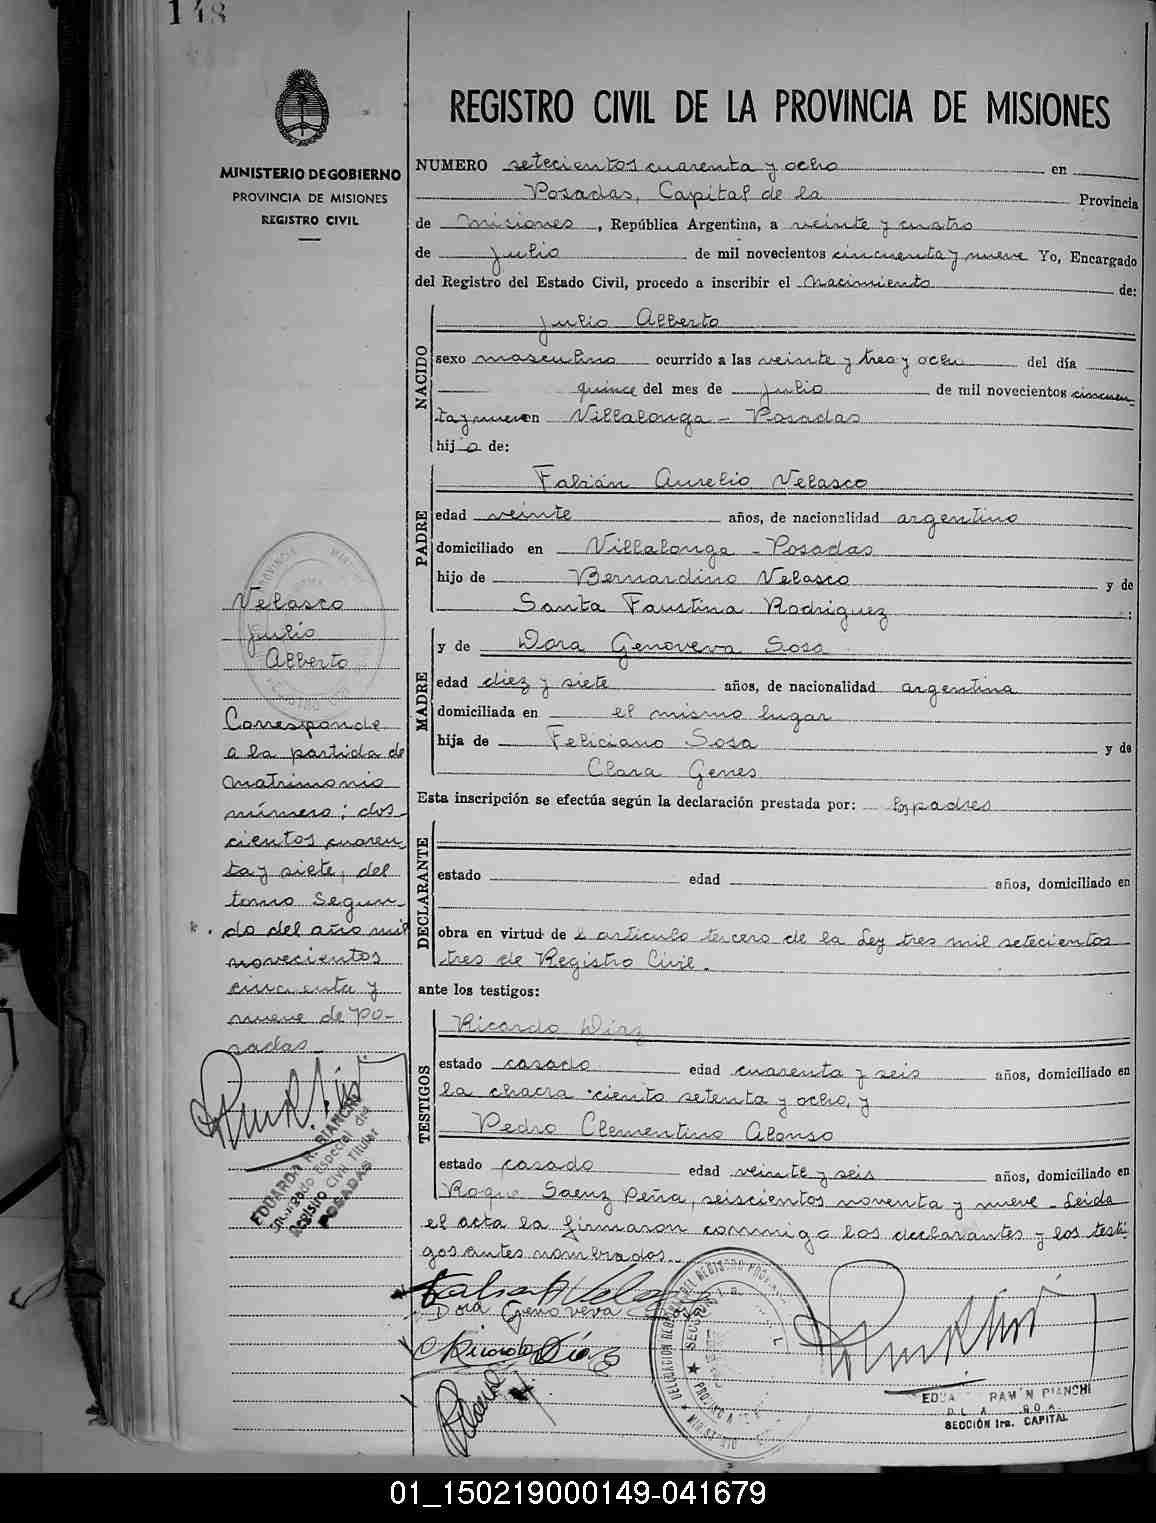 148
REGISTRO CIVIL DE LA PROVINCIA DE MISIONES
MINISTERIO DE GOBIERNO
PROVINCIA DE MISIONES
REGISTRO CIVIL
NUMERO setecientos cuarenta y ocho en
Posadas, Capital de la Provincia
de Misiones, República Argentina, a veinte y cuatro
de julio de mil novecientos cincuenta y nueve Yo, Encargado
del Registro del Estado Civil, procedo a inscribir el nacimiento de:
NACIDO
Julio Alberto
sexo masculino ocurrido a las veinte y tres y ocho del día
quince del mes de julio de mil novecientos cincuen
ta y nueve en Villalonga - Posadas
hijo de:
PADRE
Fabián Aurelio Velasco
edad veinte años, de nacionalidad argentino
domiciliado en Villalonga - Posadas
hijo de Bernardino Velasco y de
Santa Faustina Rodriguez :
MADRE
y de Dora Genoveva Sosa
edad diez y siete años, de nacionalidad argentina
domiciliada en el mismo lugar
hija de Feliciano Sosa y de
Clara Genes
Esta inscripción se efectúa según la declaración prestada por: los padres
DECLARANTE
estado edad años, domiciliado en
obra en virtud de l artículo tercero de la Ley tres mil setecientos
tres de Registro Civil.
ante los testigos:
TESTIGOS
Ricardo Diaz
estado casado edad cuarenta y seis años, domiciliado en
la chacra ciento setenta y ocho, y
Pedro Clementino Alonso
estado casado edad veinte y seis años, domiciliado en
Roque Saenz Peña, seiscientos noventa y nueve - Leida
el acta la firmaron conmigo los declarantes y los testi
gos antes nombrados.
Dora Genoveva Sosa
Ricardo Díaz
EDUA RAMÓN BIANCHI
SECCIÓN 1ra. CAPITAL
Velasco
Julio
Alberto
Corresponde
a la partida de
matrimonio
número; dos
cientos cuaren
ta y siete, del
tomo Segun-
do del año mil
novecientos
cincuenta y
nueve de Po-
sadas
EDUARDO R. BIANCHI
Encargado Especial del
Registro Civil Titular
POSADAS
01_150219000149-041679